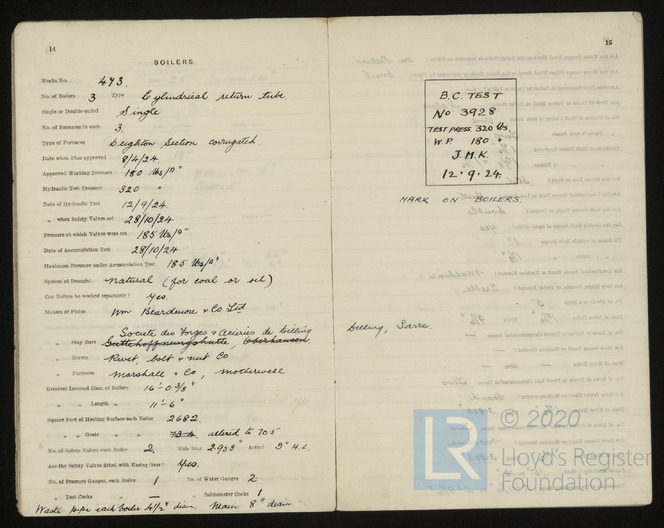 14
BOILERS.
Works No. 473.
No. of Boilers 3 Type Cylindrical return tube.
Single or Double-ended Single
No. of Furnaces in each 3.
Type of Furnaces Deighton Section corrugated.
Date when Plan approved 8/4/24
Approved Working Pressure 180 lbs/□"
Hydraulic Test Pressure 320 "
Date of Hydraulic Test 12/9/24
" when Safety Valves set 28/10/24
Pressure at which Valves were set 185 lbs/□"
Date of Accumulation Test 28/10/24
Maximum Pressure under Accumulation Test 185 lbs/□"
System of Draught Natural (for coal or oil)
Can Boilers be worked separately? Yes.
Makers of Plates Wm Beardmore & Co Ltd
Societe des Forges & Acieries de Dilling
" Stay Bars Guttehoffnungshutte, Oberhausen.
" Rivets Rivet, bolt & nut Co
" Furnaces Marshall & Co, Motherwell
Greatest Internal Diam. of Boilers 16'-0 3/8"
" " Length " 11'-6"
Square Feet of Heating Surface each Boiler 2682.
" " Grate " 73.4 altered to 70.5
No. of Safety Valves each Boiler 2. Rule Diam. 2.953" Actual 3" H.L.
Are the Safety Valves fitted with Easing Gear? Yes.
No. of Pressure Gauges, each Boiler 1 No. of Water Gauges 2
" Test Cocks " — Salinometer Cocks 1
Waste pipe each boiler 4½" diam. Main 8" diam
15
B.C. TEST
No 3928
TEST PRESS. 320 lbs
W.P. 180 "
J.M.K.
12.9.24.
MARK ON BOILERS.
Dilling, Sarre.
LR
© 2020
Lloyd's Register
Foundation